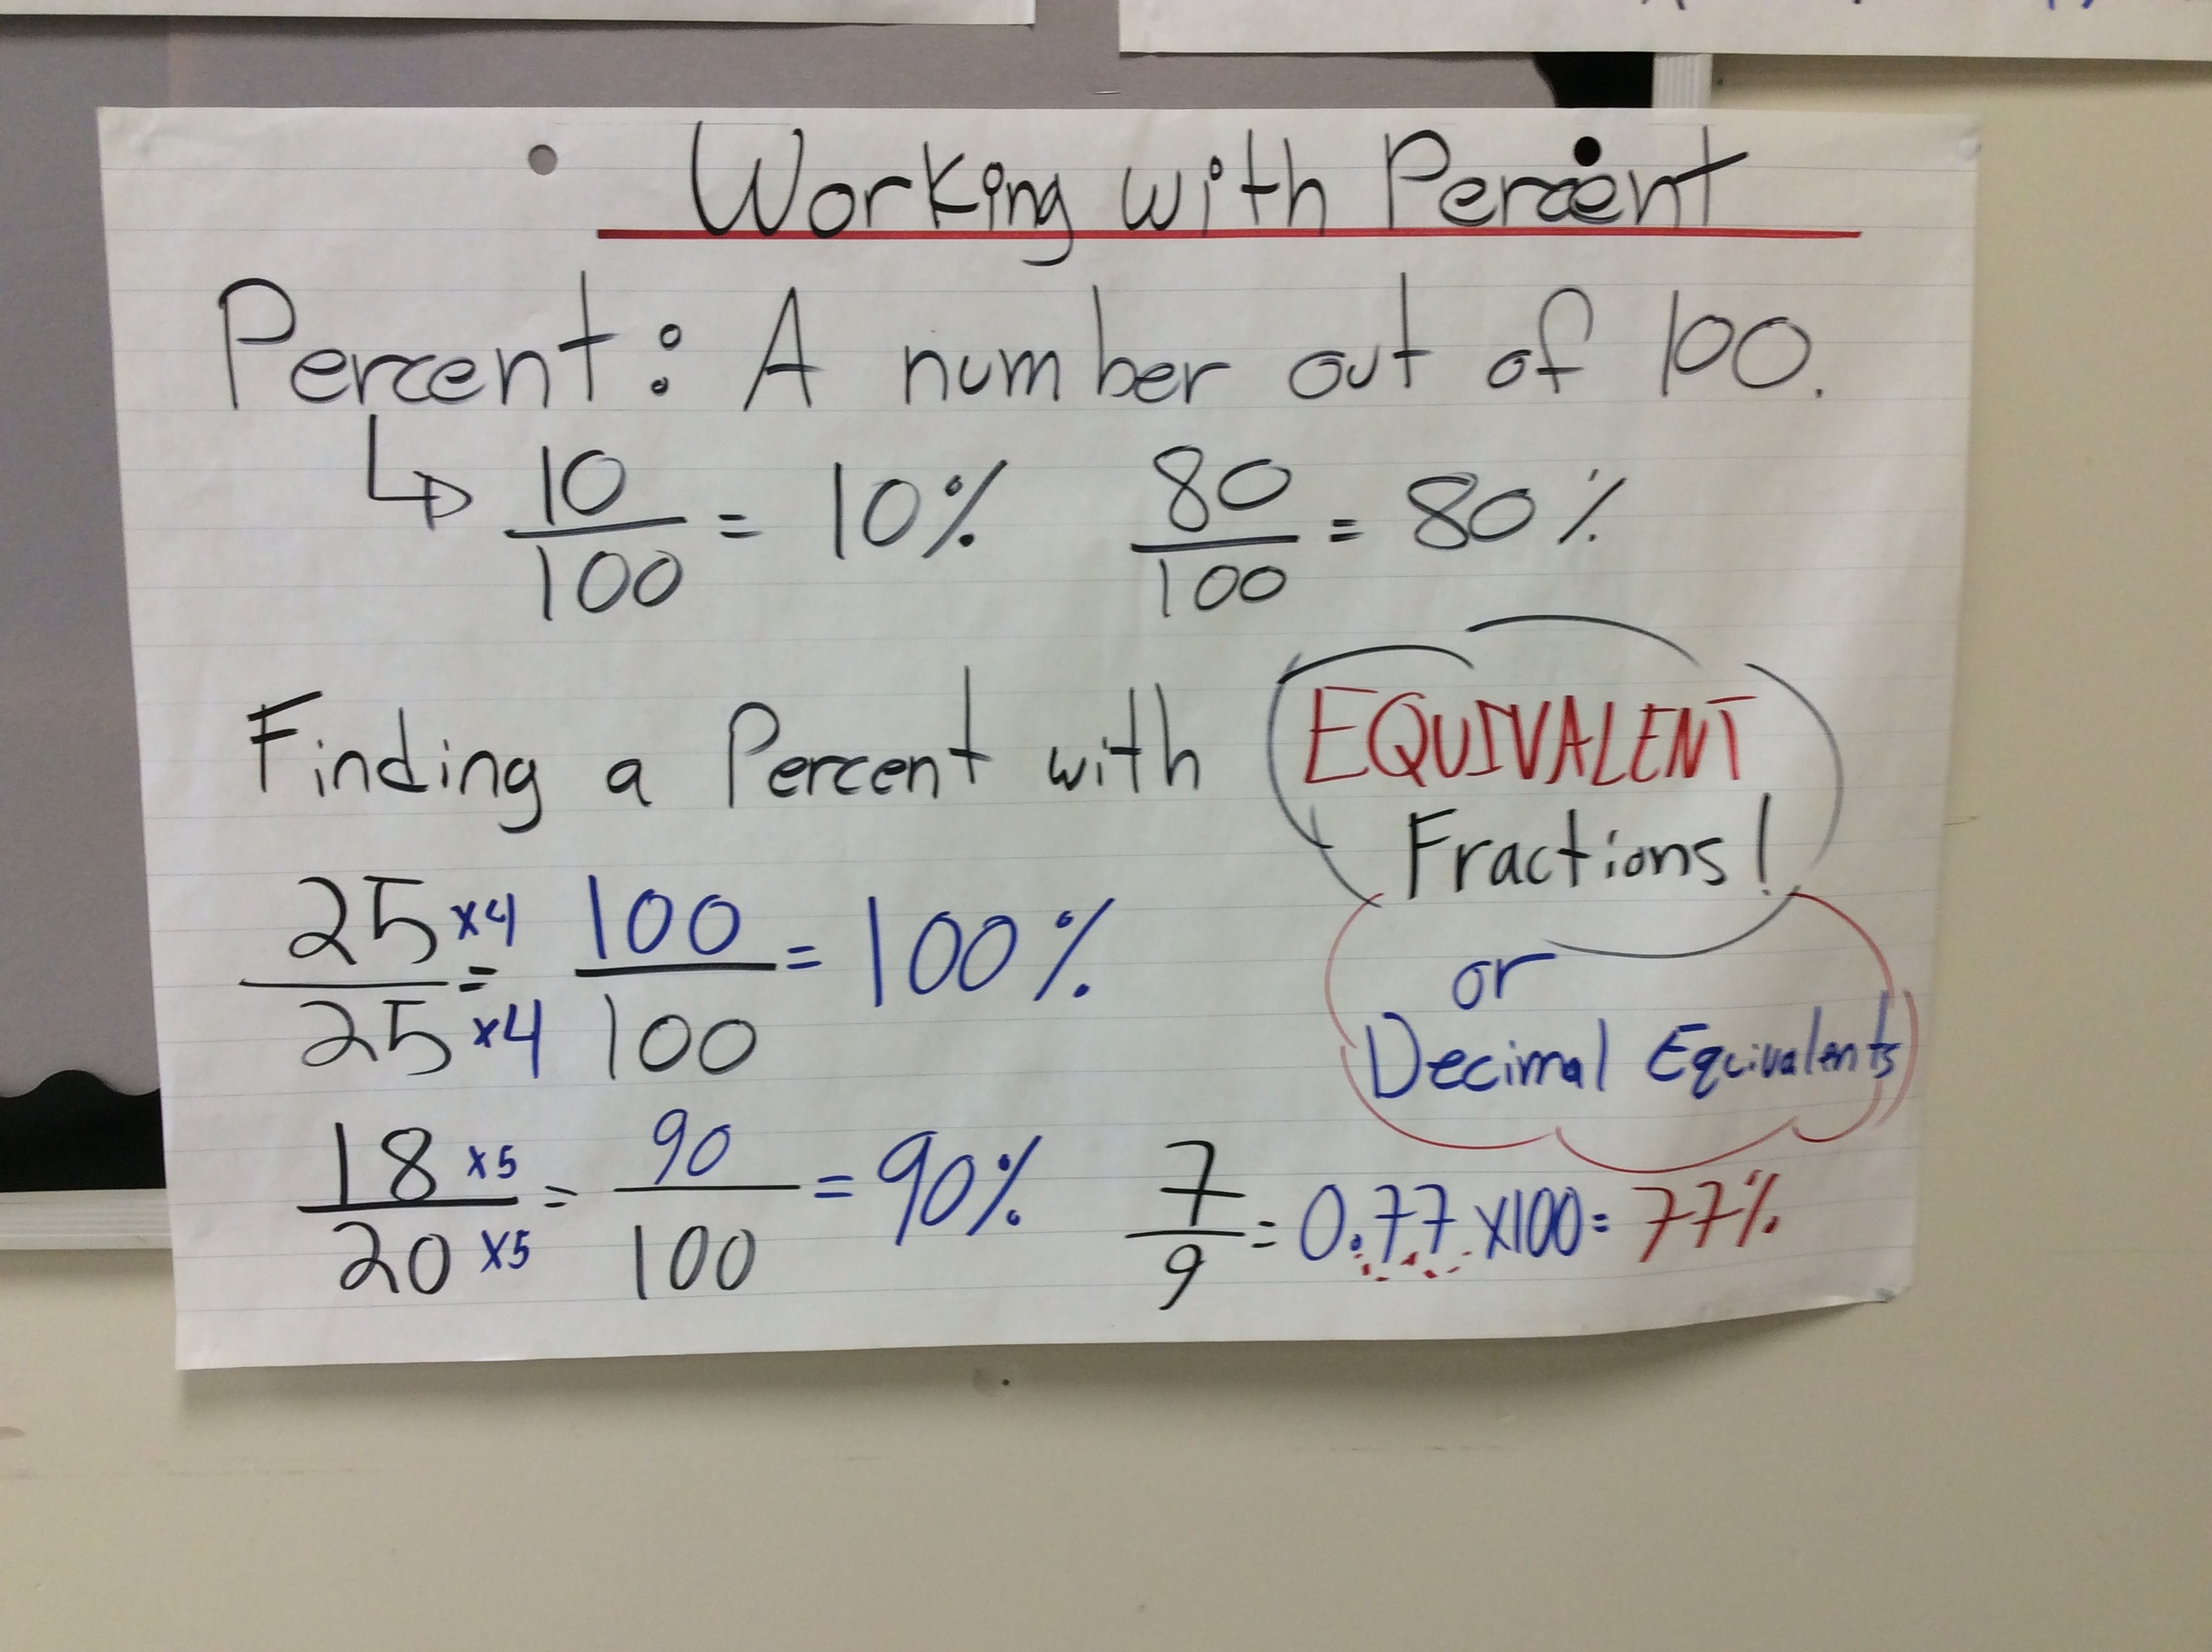 Working with Percent
Percent: A number out of 100.
10/100 = 10% 80/100 = 80%
Finding a Percent with EQUIVALENT
Fractions!
or
Decimal Equivalents
25 x4/25 x4 = 100/100 = 100%
18 x5/20 x5 = 90/100 = 90%
7/9 = 0.77 x100 = 77%